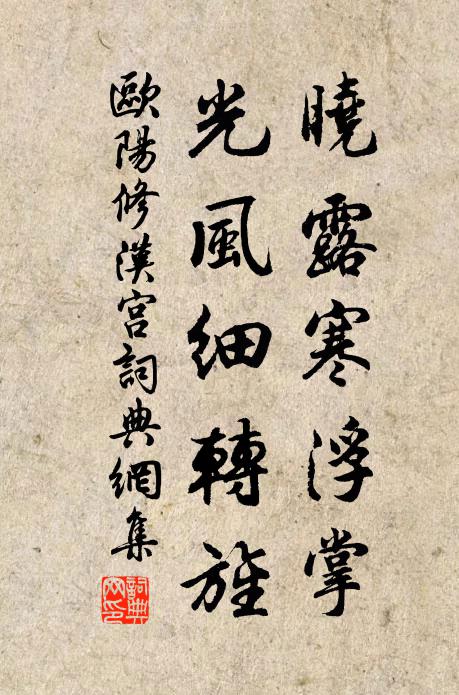 曉露寒浮掌
光風細轉旌
歐陽修漢宮詞典網集
詞典網印